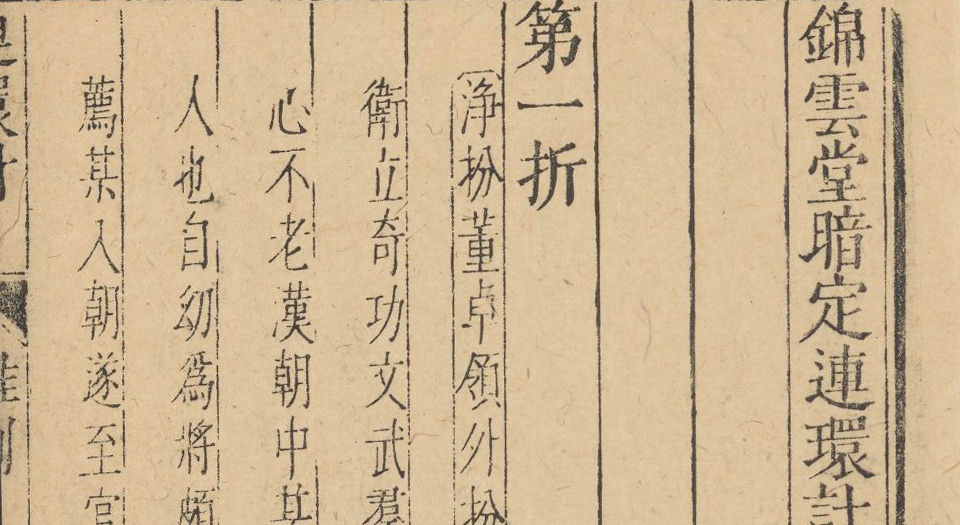 錦雲堂暗定連環計
第一折
淨扮董卓領外扮
衛立奇功文武羣
心不老漢朝中某
人也自幼爲將頗
薦某入朝遂至官
環計
雜劇